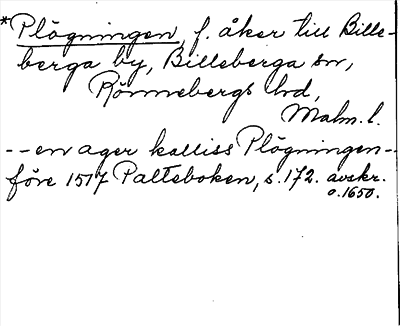 *Plögningen, f. åker till Bille-
berga by, Billeberga sn,
Rönnebergs hd,
Malm. l.
-- en ager kalliss Plögningen --
före 1517 Palteboken, s. 172. avskr.
o. 1650.